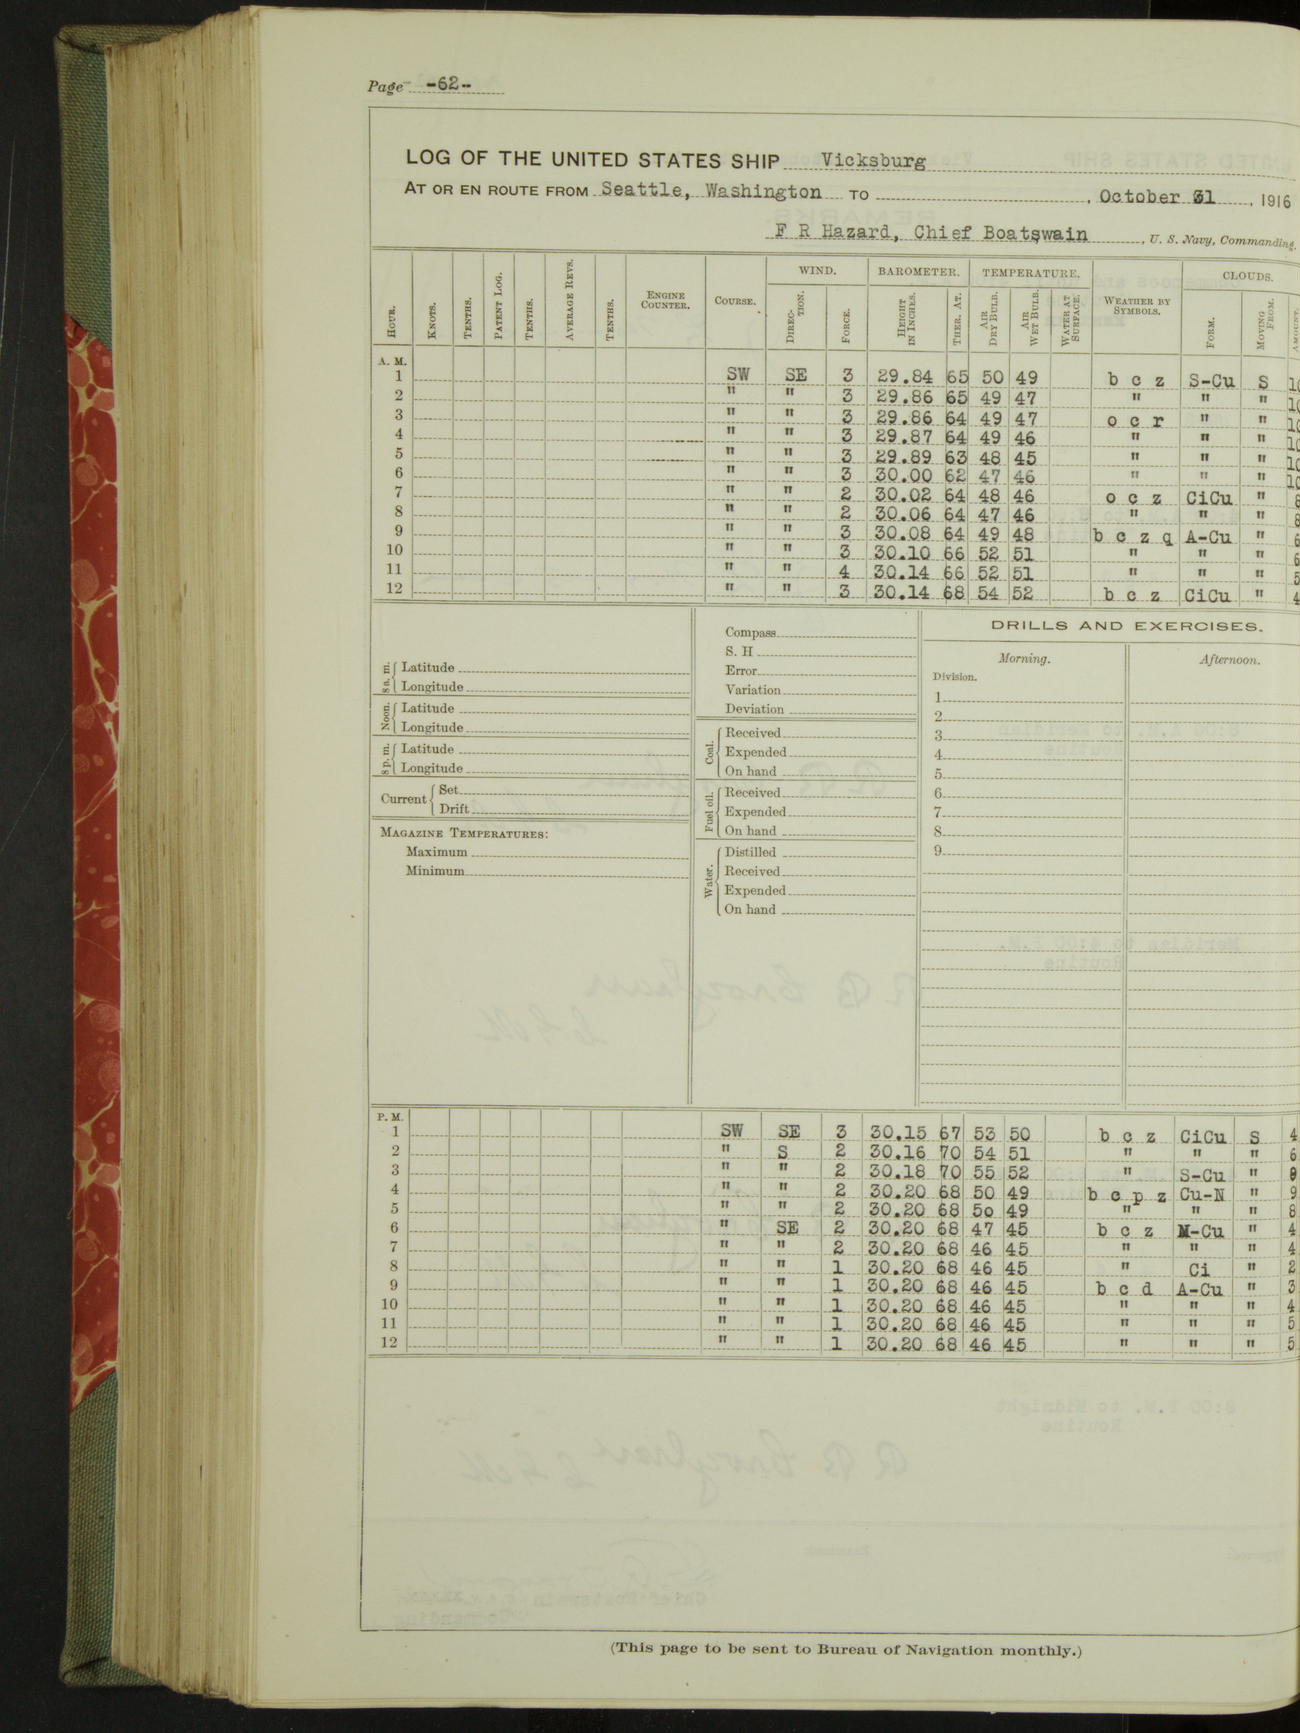 Page -62-
LOG OF THE UNITED STATES SHIP Vicksburg
AT OR EN ROUTE FROM Seattle, Washington TO , October 31, 1916
F R Hazard, Chief Boatswain, U. S. Navy, Commanding.
HOUR. KNOTS. TENTHS. PATENT LOG. TENTHS. AVERAGE REVS. TENTHS. ENGINE COUNTER. COURSE. WIND. DIRECTION. FORCE. BAROMETER. HEIGHT IN INCHES. THER. AT. TEMPERATURE. AIR DRY BULB. AIR WET BULB. WATER AT SURFACE. WEATHER BY SYMBOLS. CLOUDS. FORM. MOVING FROM. AMOUNT.
A. M.
1 SW SE 3 29.84 65 50 49 b c z S-Cu S 10
2 " " 3 29.86 65 49 47 " " " 10
3 " " 3 29.86 64 49 47 o c r " " 10
4 " " 3 29.87 64 49 46 " " " 10
5 " " 3 29.89 63 48 45 " " " 10
6 " " 3 30.00 62 47 46 " " " 10
7 " " 2 30.02 64 48 46 o c z CiCu " 8
8 " " 2 30.06 64 47 46 " " " 8
9 " " 3 30.08 64 49 48 b c z q A-Cu " 6
10 " " 3 30.10 66 52 51 " " " 6
11 " " 4 30.14 66 52 51 " " " 5
12 " " 3 30.14 68 54 52 b c z CiCu " 4
8 a. m. Latitude
Longitude
Noon. Latitude
Longitude
8 p. m. Latitude
Longitude
Current Set
Drift
MAGAZINE TEMPERATURES:
Maximum
Minimum
Compass
S. H
Error
Variation
Deviation
Coal. Received
Expended
On hand
Fuel oil. Received
Expended
On hand
Water. Distilled
Received
Expended
On hand
DRILLS AND EXERCISES.
Morning. Afternoon.
Division.
1
2
3
4
5
6
7
8
9
P. M.
1 SW SE 3 30.15 67 53 50 b c z CiCu S 4
2 " S 2 30.16 70 54 51 " " " 6
3 " " 2 30.18 70 55 52 " S-Cu "
4 " " 2 30.20 68 50 49 b c p z Cu-N " 9
5 " " 2 30.20 68 50 49 " " " 8
6 " SE 2 30.20 68 47 45 b c z -Cu " 4
7 " " 2 30.20 68 46 45 " " " 4
8 " " 1 30.20 68 46 45 " Ci " 2
9 " " 1 30.20 68 46 45 b c d A-Cu " 3
10 " " 1 30.20 68 46 45 " " " 4
11 " " 1 30.20 68 46 45 " " " 5
12 " " 1 30.20 68 46 45 " " " 5
(This page to be sent to Bureau of Navigation monthly.)